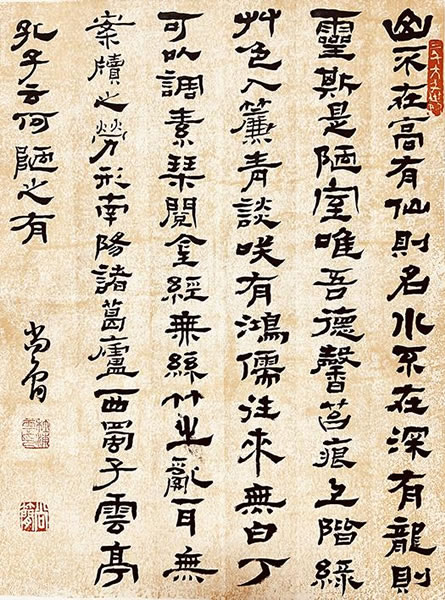 山不在高有仙則名水不在深有龍則
靈斯是陋室唯吾德馨苔痕上階綠
艸色入簾青談咲有鴻儒往來無白丁
可以調素琹閱金經無絲竹之亂耳無
案牘之勞形南陽諸葛廬西蜀子雲亭
孔子云何陋之有
尚